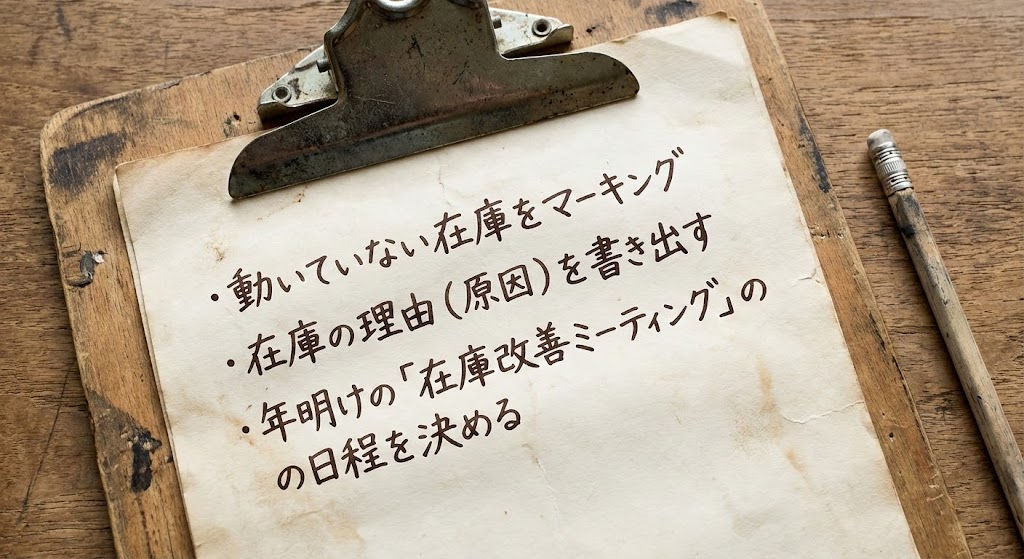 ・動いていない在庫をマーキング
・在庫の理由(原因)を書き出す
・年明けの「在庫改善ミーティング」の
の日程を決める